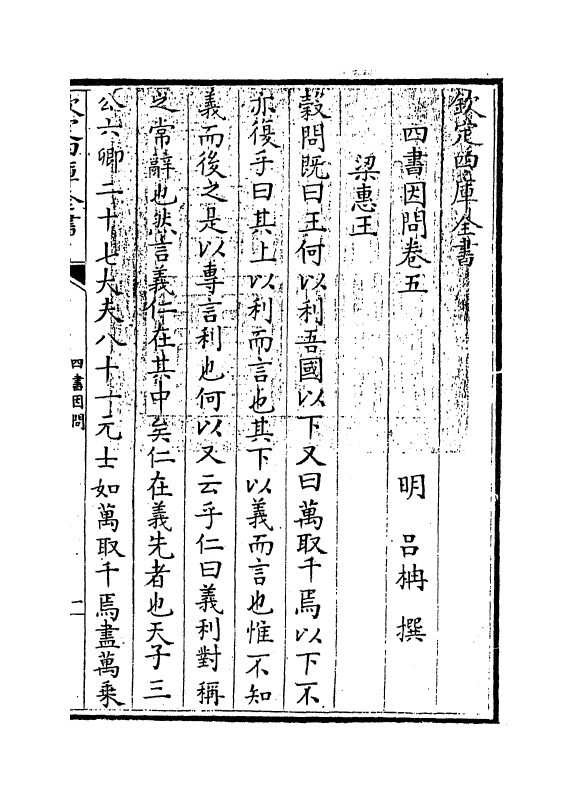 欽定四庫全書
四書因問卷五
明 吕柟 撰
梁惠王
穀問既曰王何以利吾國以下又曰萬取千焉以下不
亦復乎曰其上以利而言也其下以義而言也惟不知
義而後之是以専言利也何以又云乎仁曰義利對稱
之常辭也然言義仁在其中矣仁在義先者也天子三
公六卿二十七大夫八十一元士如萬取千焉盡萬乗
欽定四庫全書
四書因問
一